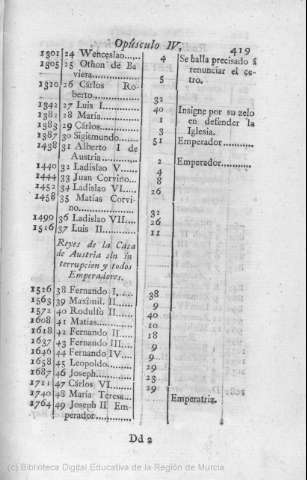 Opúsculo IV. 419
1301 24 Wenceslao...... 4 Se halla precisado á
1305 25 Othon de Ba renunciar el ce-
viera............ 5 tro.
1310 26 Cárlos Ro-
berto............ 32
1342 27 Luis I........ 40 Insigne por su zelo
1382 28 María......... 1 en defender la
1383 29 Cárlos........ 3 Iglesia.
1387 30 Sigismundo.... 51 Emperador............
1438 31 Alberto I de
Austria.......... 2 Emperador............
1440 32 Ladislao V.... 4
1444 33 Juan Corvino... 8
1452 34 Ladislao VI.... 26
1458 35 Matias Corvi-
no............... 32
1490 36 Ladislao VII... 26
1516 37 Luis II........ 11
Reyes de la Casa
de Austria sin in
terrupcion y todos
Emperadores.
1526 38 Fernando I..... 38
1563 39 Maximil. II.... 9
1572 40 Rodulfo II..... 40
1608 41 Matias......... 10
1618 42 Fernando II.... 18
1637 43 Fernando III... 9
1646 44 Fernando IV.... 9
1658 45 Leopoldo....... 29
1687 46 Joseph......... 23
1711 47 Cárlos VI...... 29
1740 48 María Teresa... Emperatriz.
1764 49 Joseph II Em
perador..........
Dd 2
(c) Biblioteca Digital Educativa de la Región de Murcia